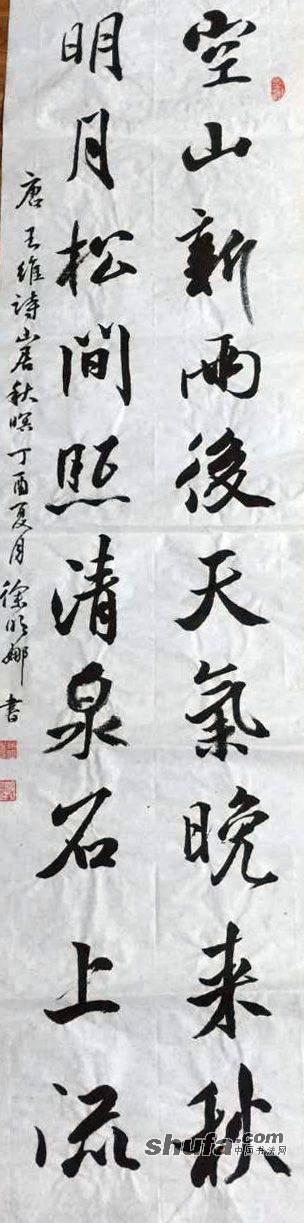 空山新雨後天氣晚来秋
明月松間照清泉石上流
唐王維詩山居秋暝丁酉夏月徐明娜書
shufa.com
中国书法网